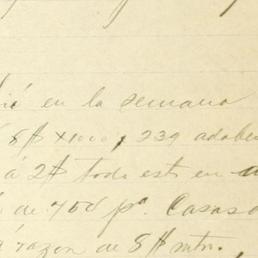 en la semana
8$ 239 adobe
á 2$ todo esto en
de 700 pª. Casas
razon de 8$ mtr.